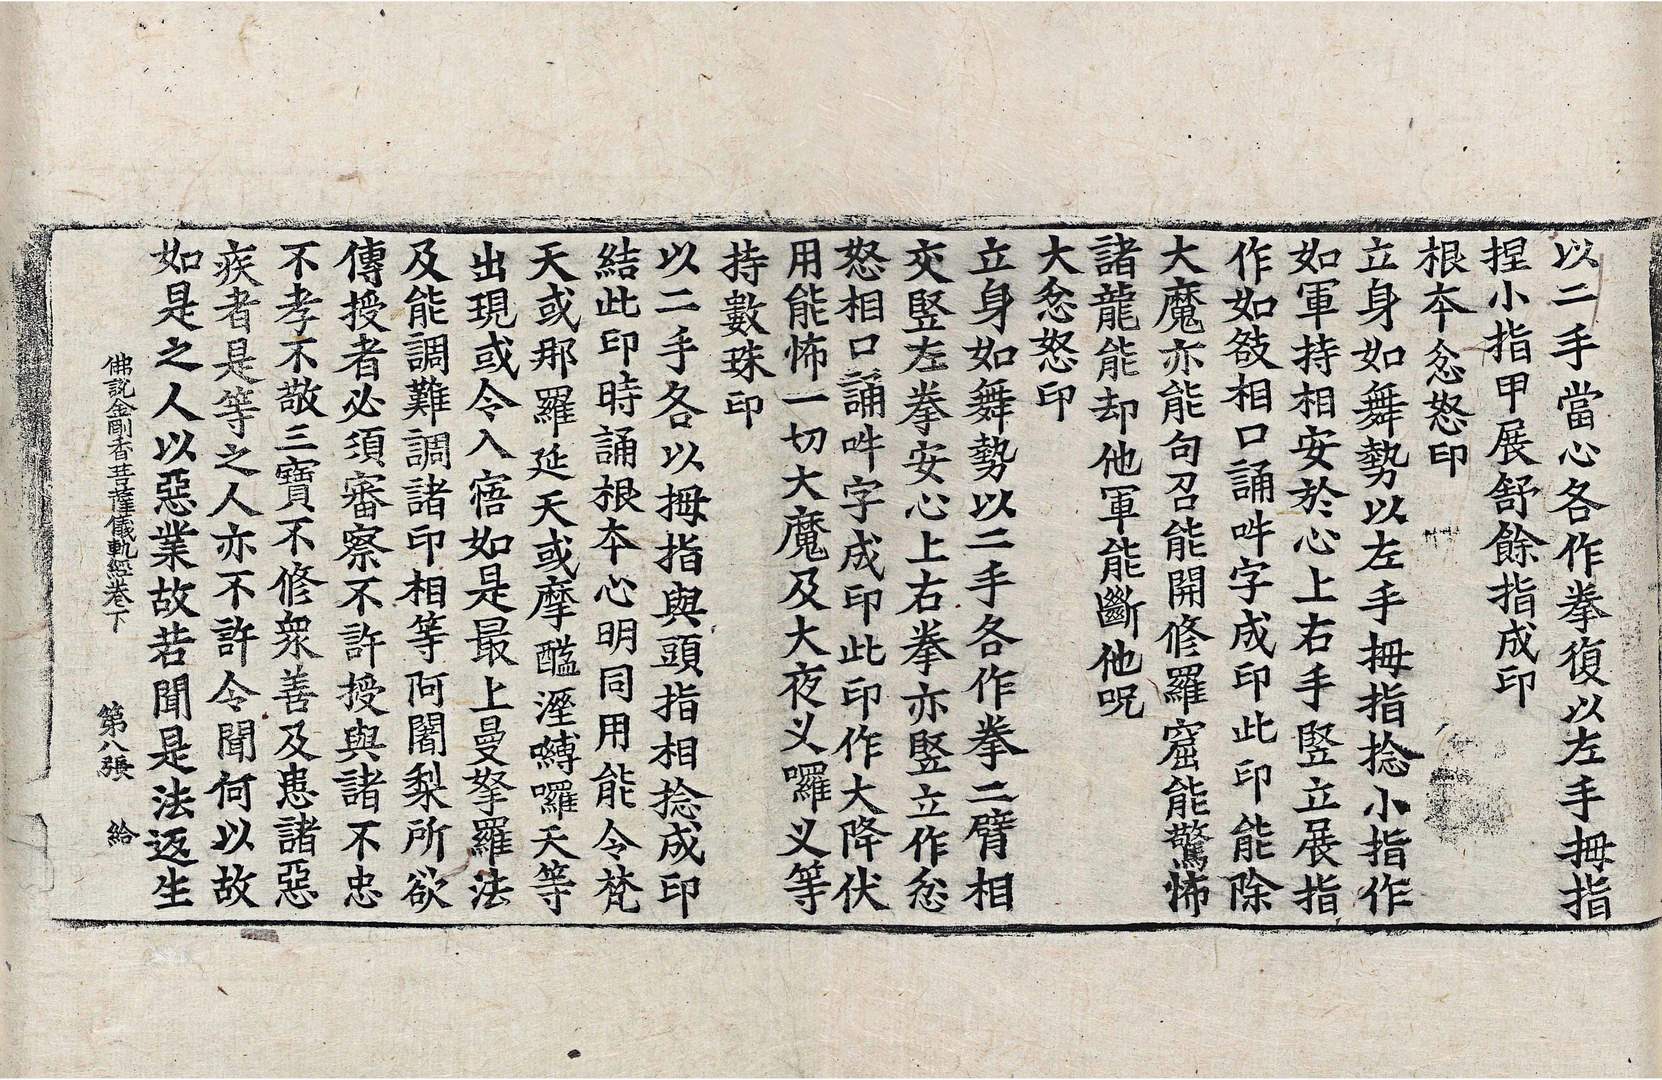 以二手當心各作拳復以左手拇指
捏小指甲展舒餘指成印
根本忿怒印
立身如舞勢以左手拇指捻小指作
如軍持相安於心上右手竪立展指
作如敆相口誦吽字成印此印能除
大魔亦能句召能開修羅窟能驚怖
諸龍能却他軍能斷他呪
大忿怒印
立身如舞勢以二手各作拳二臂相
交竪左拳安心上右拳亦竪立作忿
怒相口誦吽字成印此印作大降伏
用能怖一切大魔及大夜义囉义等
持數珠印
以二手各以拇指與頭指相捻成印
結此印時誦根本心明同用能令梵
天或那羅延天或摩醯溼嚩囉天等
出現或令入寤如是最上曼拏羅法
及能調難調諸印相等阿闍梨所欲
傳授者必須審察不許授與諸不忠
不孝不敬三寶不修衆善及患諸惡
疾者是等之人亦不許令聞何以故
如是之人以惡業故若聞是法返生
佛說金剛香菩薩儀軌經卷下 第八張 給